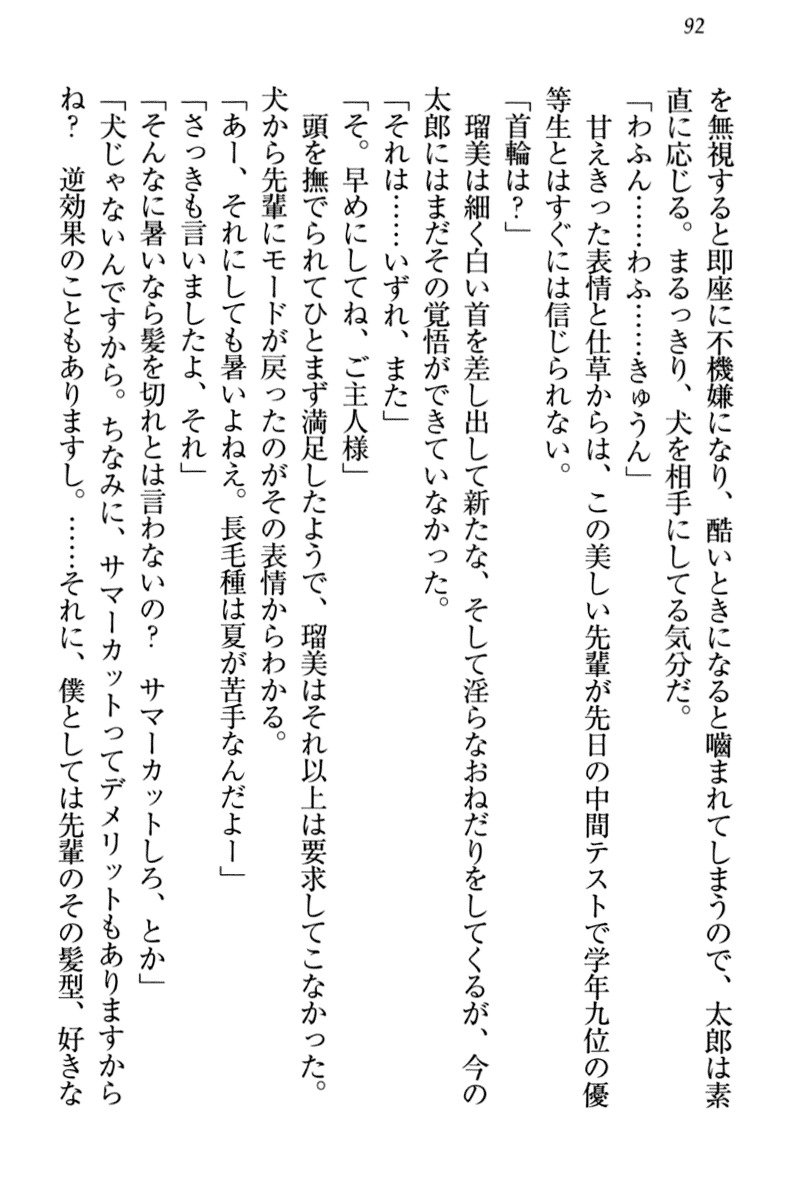 92
を無視すると即座に不機嫌になり、酷いときになると嚙まれてしまうので、太郎は素
直に応じる。まるっきり、犬を相手にしてる気分だ。
「わふん……わふ……きゅうん」
甘えきった表情と仕草からは、この美しい先輩が先日の中間テストで学年九位の優
等生とはすぐには信じられない。
「首輪は？」
瑠美は細く白い首を差し出して新たな、そして淫らなおねだりをしてくるが、今の
太郎にはまだその覚悟ができていなかった。
「それは……いずれ、また」
「そ。早めにしてね、ご主人様」
頭を撫でられてひとまず満足したようで、瑠美はそれ以上は要求してこなかった。
犬から先輩にモードが戻ったのがその表情からわかる。
「あー、それにしても暑いよねえ。長毛種は夏が苦手なんだよー」
「さっきも言いましたよ、それ」
「そんなに暑いなら髪を切れとは言わないの？　サマーカットしろ、とか」
「犬じゃないんですから。ちなみに、サマーカットってデメリットもありますから
ね？　逆効果のこともありますし。……それに、僕としては先輩のその髪型、好きな